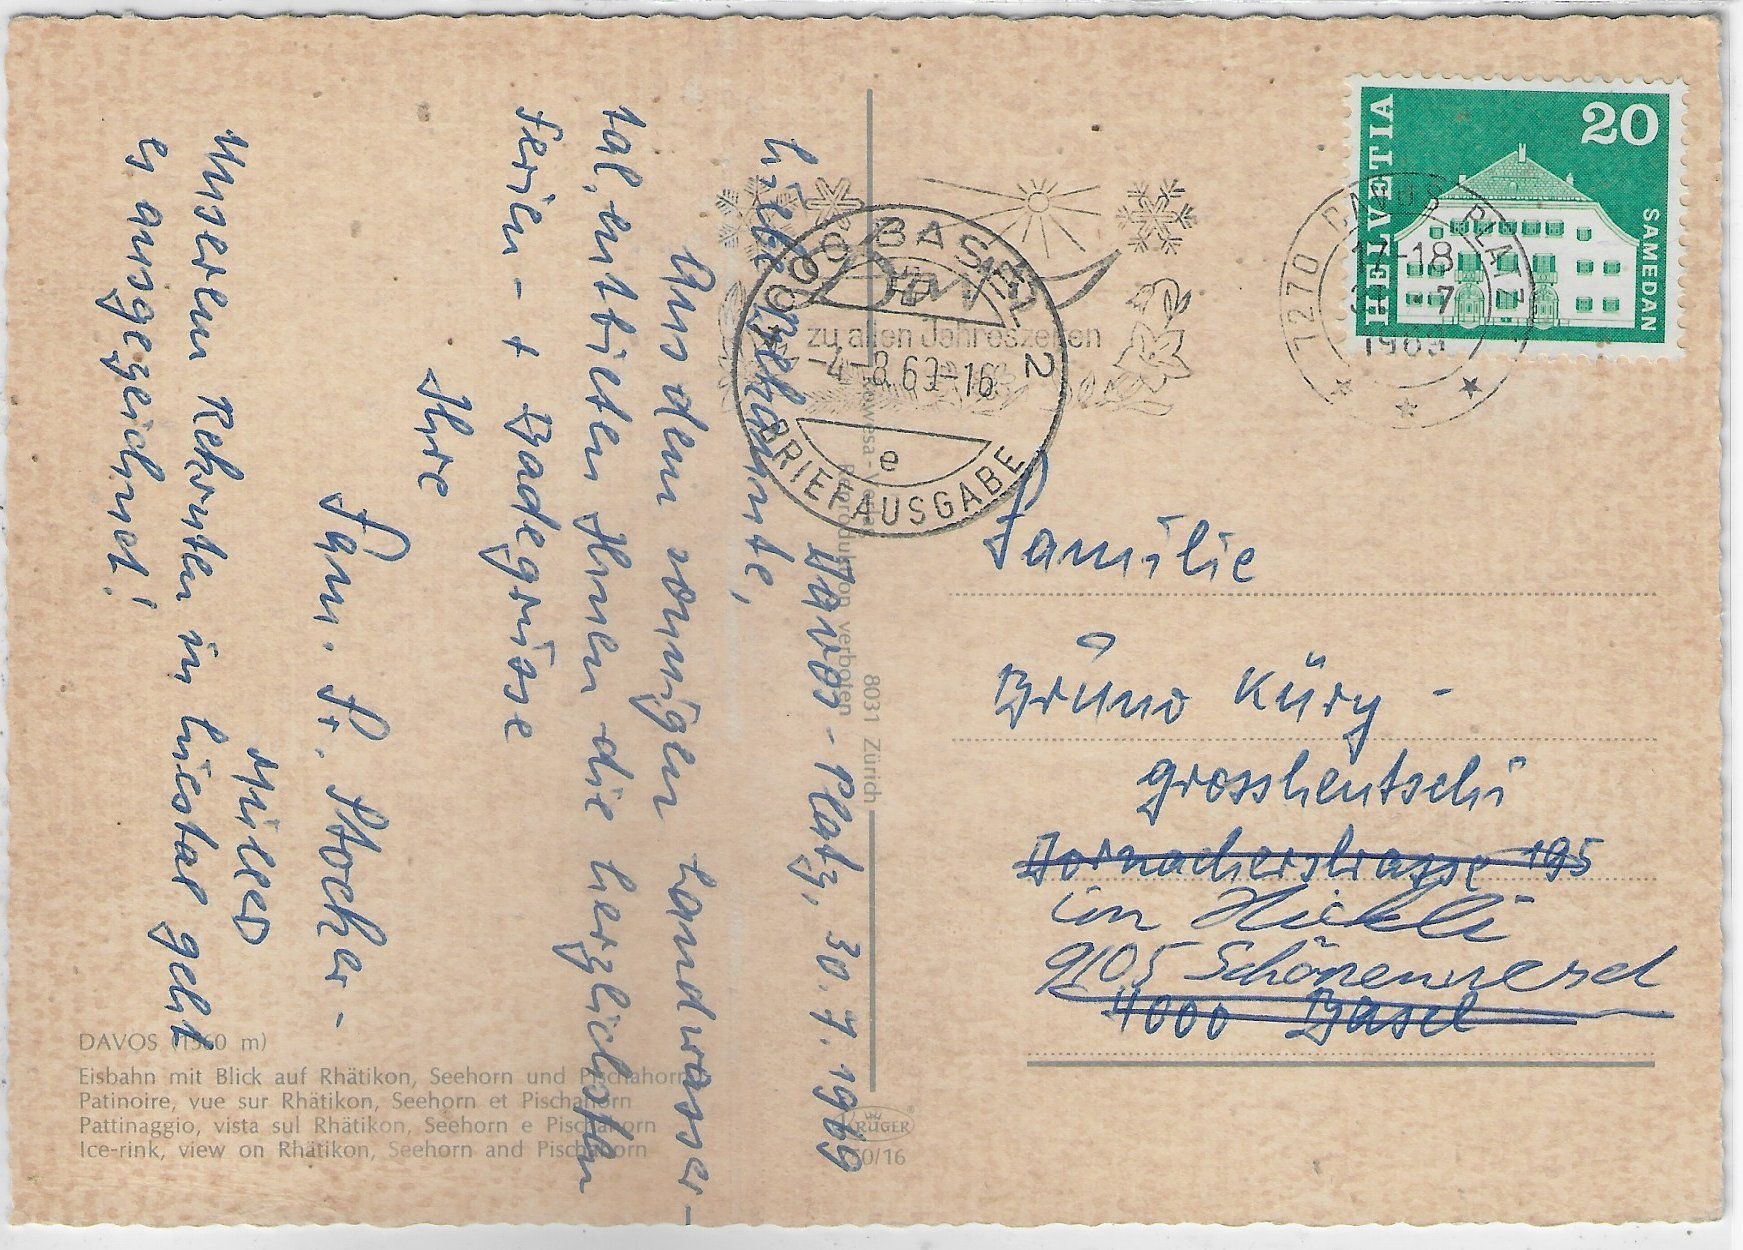 Davos-Platz, 30.7.1969
Liebe Bekannte,
Aus dem sonnigen Landwasser-
tal, entbieten Ihnen die herzlichsten
Ferien- + Badegrüsse
Ihre
Fam. Fr. Stocker-
Müller
Unserem Rekruten in Liestal geht
es ausgezeichnet!
DAVOS (1560 m)
Eisbahn mit Blick auf Rhätikon, Seehorn und Pischahorn
Patinoire, vue sur Rhätikon, Seehorn et Pischahorn
Pattinaggio, vista sul Rhätikon, Seehorn e Pischahorn
Ice-rink, view on Rhätikon, Seehorn and Pischahorn
Reproduktion verboten
8031 Zürich
KRÜGER
/16
zu allen Jahreszeiten
4000 BASEL 2
-4.-8.69-16
e
BRIEFAUSGABE
7270 DAVOS PLATZ
17-18
-7
1969
HELVETIA
20
SAMEDAN
Familie
Bruno Küry-
Grossheutschi
Dornacherstrasse 195
im
9105 Schönenwerd
4000 Basel